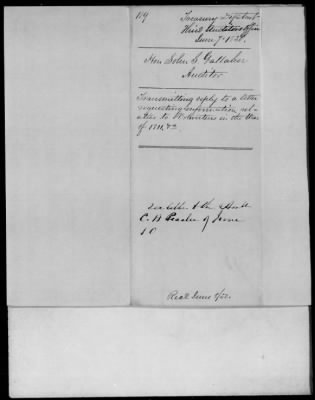 119
Treasury Departmt
Third Auditors Office
June 7. 185
Hon John S. Gallaher
Auditor
Transmitting reply to a letter
requesting information rel-
ative to Volunteers in the War
of 1811, &c
see letter to
C. H. of June
10
Recd June 8/50.